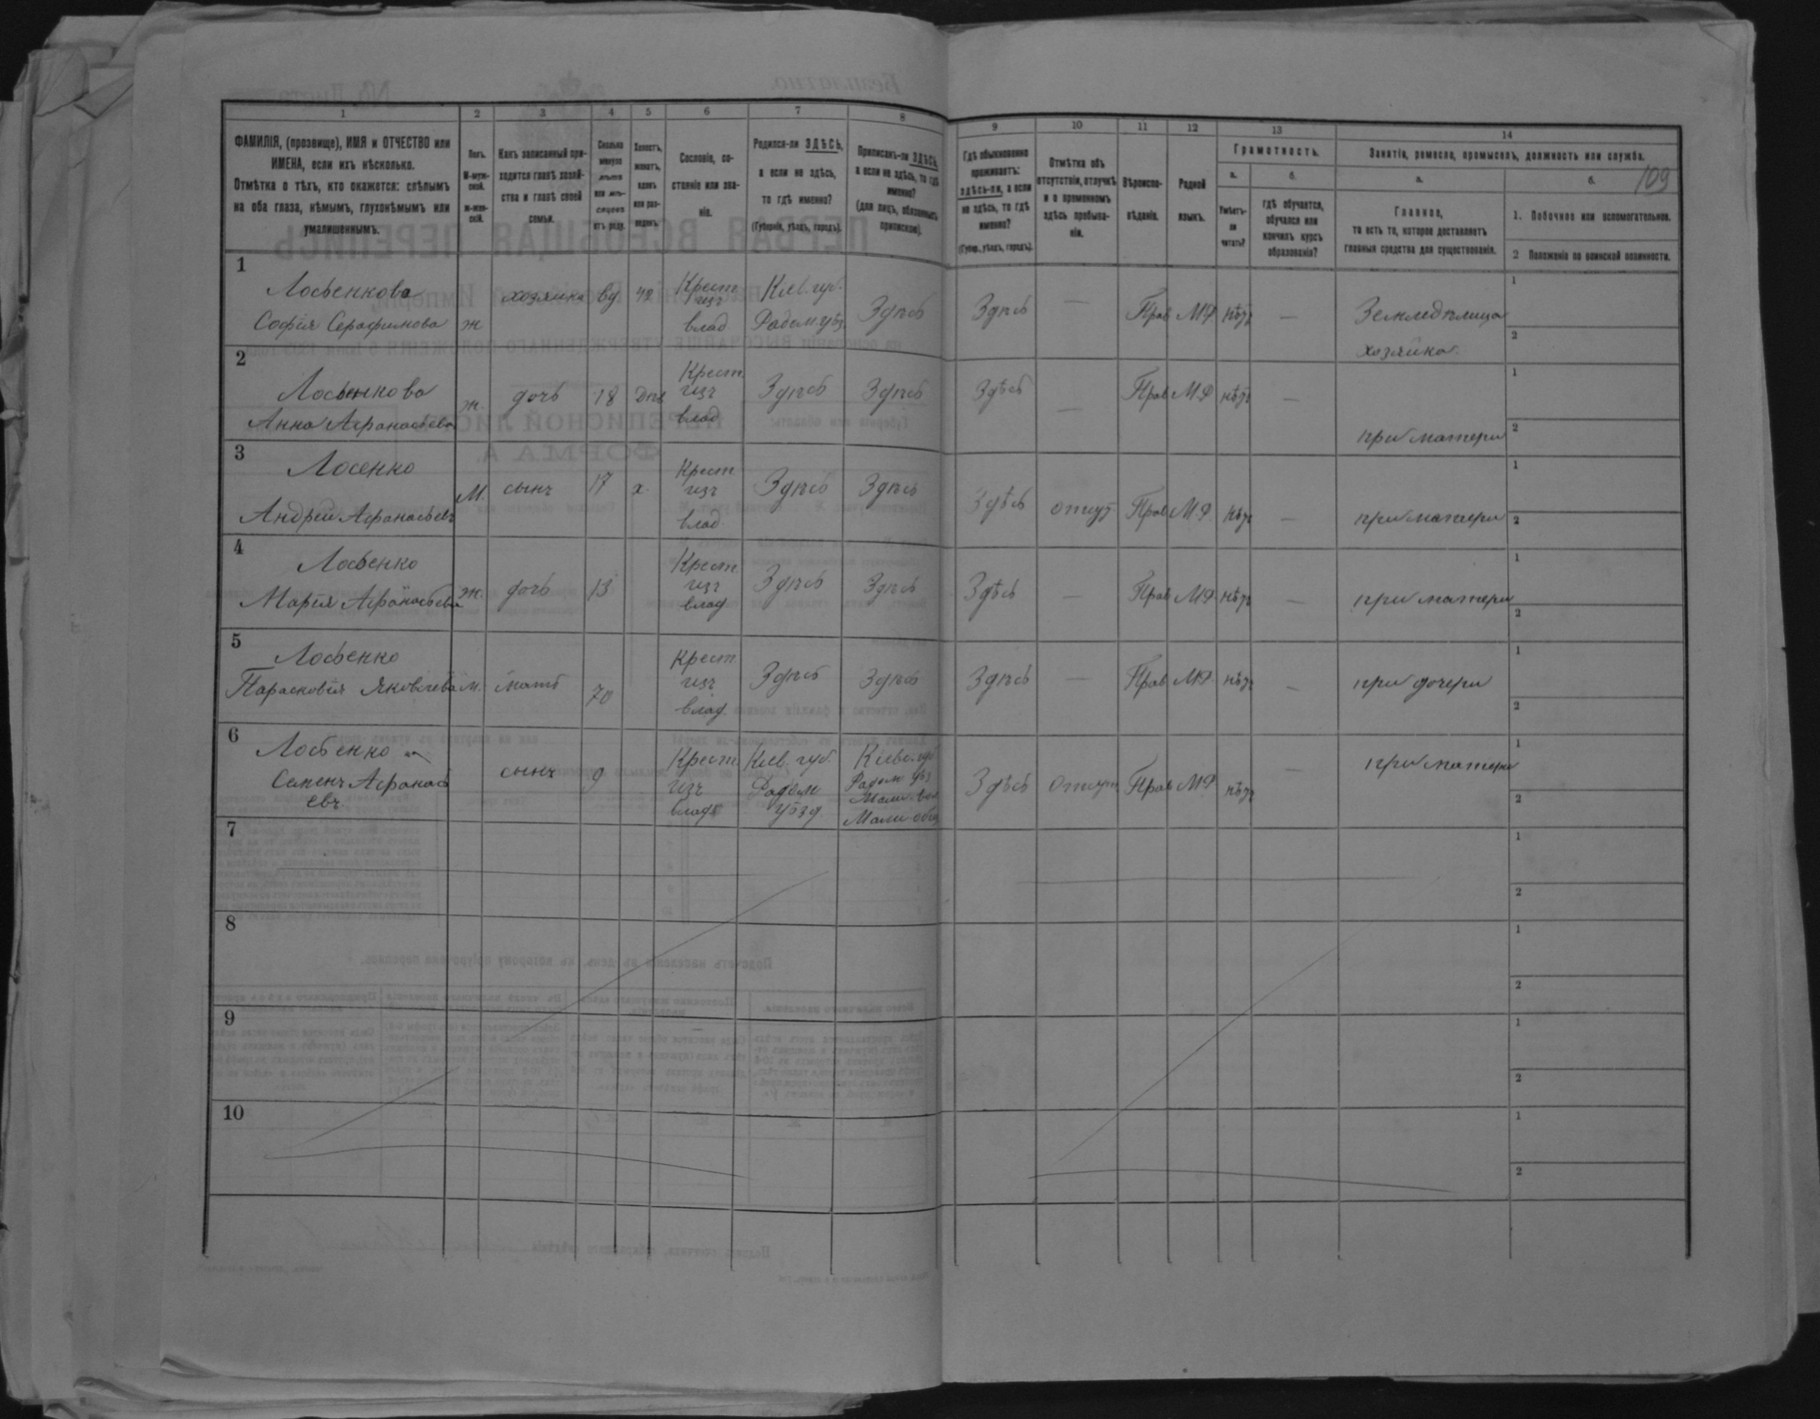 109
1 2 3 4 5 6 7 8 9 10 11 12 13 14
ФАМИЛІЯ, (прозвище), ИМЯ и ОТЧЕСТВО или ИМЕНА, если ихъ нѣсколько.
Отмѣтка о тѣхъ, кто окажется: слѣпымъ на оба глаза, нѣмымъ, глухонѣмымъ или умалишеннымъ.
Полъ. М-муж-ской. ж-жен-скій.
Какъ записанный при-ходится главѣ хозяй-ства и главѣ своей семьи.
Сколько минуло лѣтъ или мѣ-сяцевъ отъ роду.
Холостъ, женатъ, вдовъ или раз-веденъ.
Сословіе, со-стояніе или зва-ніе.
Родился-ли ЗДѢСЬ, а если не здѣсь, то гдѣ именно?
(Губернія, уѣздъ, городъ).
Приписанъ-ли ЗДѢСЬ, а если не здѣсь, то гдѣ именно?
(для лицъ, обязанныхъ припискою).
Гдѣ обыкновенно проживаетъ: здѣсь-ли, а если не здѣсь, то гдѣ именно?
(Губер., уѣздъ, городъ).
Отмѣтка объ отсутствіи, отлучкѣ и о временномъ здѣсь пребыва-ніи.
Вѣроиспо-вѣданіе.
Родной языкъ.
Грамотность.
а. Умѣетъ-ли читать?
б. гдѣ обучается, обучался или кончилъ курсъ образованія?
Занятіе, ремесло, промыселъ, должность или служба.
а. Главное, то есть то, которое доставляетъ главныя средства для существованія.
б. 1. Побочное или вспомогательное.
2 Положеніе по воинской повинности.
1 Лосьенкова Софія Серафимова ж хозяйка 42 вд Крест. изъ влад Кіев. губ. Радом. уѣз. Здѣсь Здѣсь — Прав М.Р. нѣтъ — Земледѣлица хозяйка 1 2
2 Лосьенкова Анна Афанасьева ж. дочь 18 Крест. изъ влад Здѣсь Здѣсь Здѣсь — Прав М.Р. нѣтъ — при матери 1 2
3 Лосенко Андрей Афанасьевъ М. сынъ 17 х. Крест. изъ влад Здѣсь Здѣсь Здѣсь Прав М.Р. нѣтъ — при матери 1 2
4 Лосьенко Марія Афанасьева ж. дочь 13 Крест. изъ влад Здѣсь Здѣсь Здѣсь — Прав М.Р. нѣтъ — при матери 1 2
5 Лосьенко Парасковія Яковлева М. мать 70 Крест. изъ влад. Здѣсь Здѣсь Здѣсь — Прав М.Р. нѣтъ — при дочери 1 2
6 Лосьенко Семенъ Афанась евъ сынъ 9 Крест. изъ влад Кіев. губ. Радом уѣзд Кіевс. губ Радом. уѣз Мали. вол Мали. общ Здѣсь Прав М.Р. нѣтъ — при матери 1 2
7 1 2
8 1 2
9 1 2
10 1 2